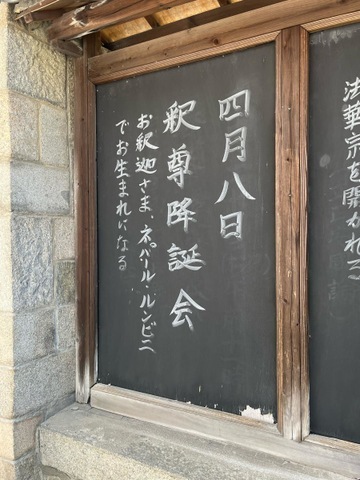 法華宗を開かれる
四月八日
釈尊降誕会
お釈迦さま、ネパール・ルンビニ
でお生まれになる